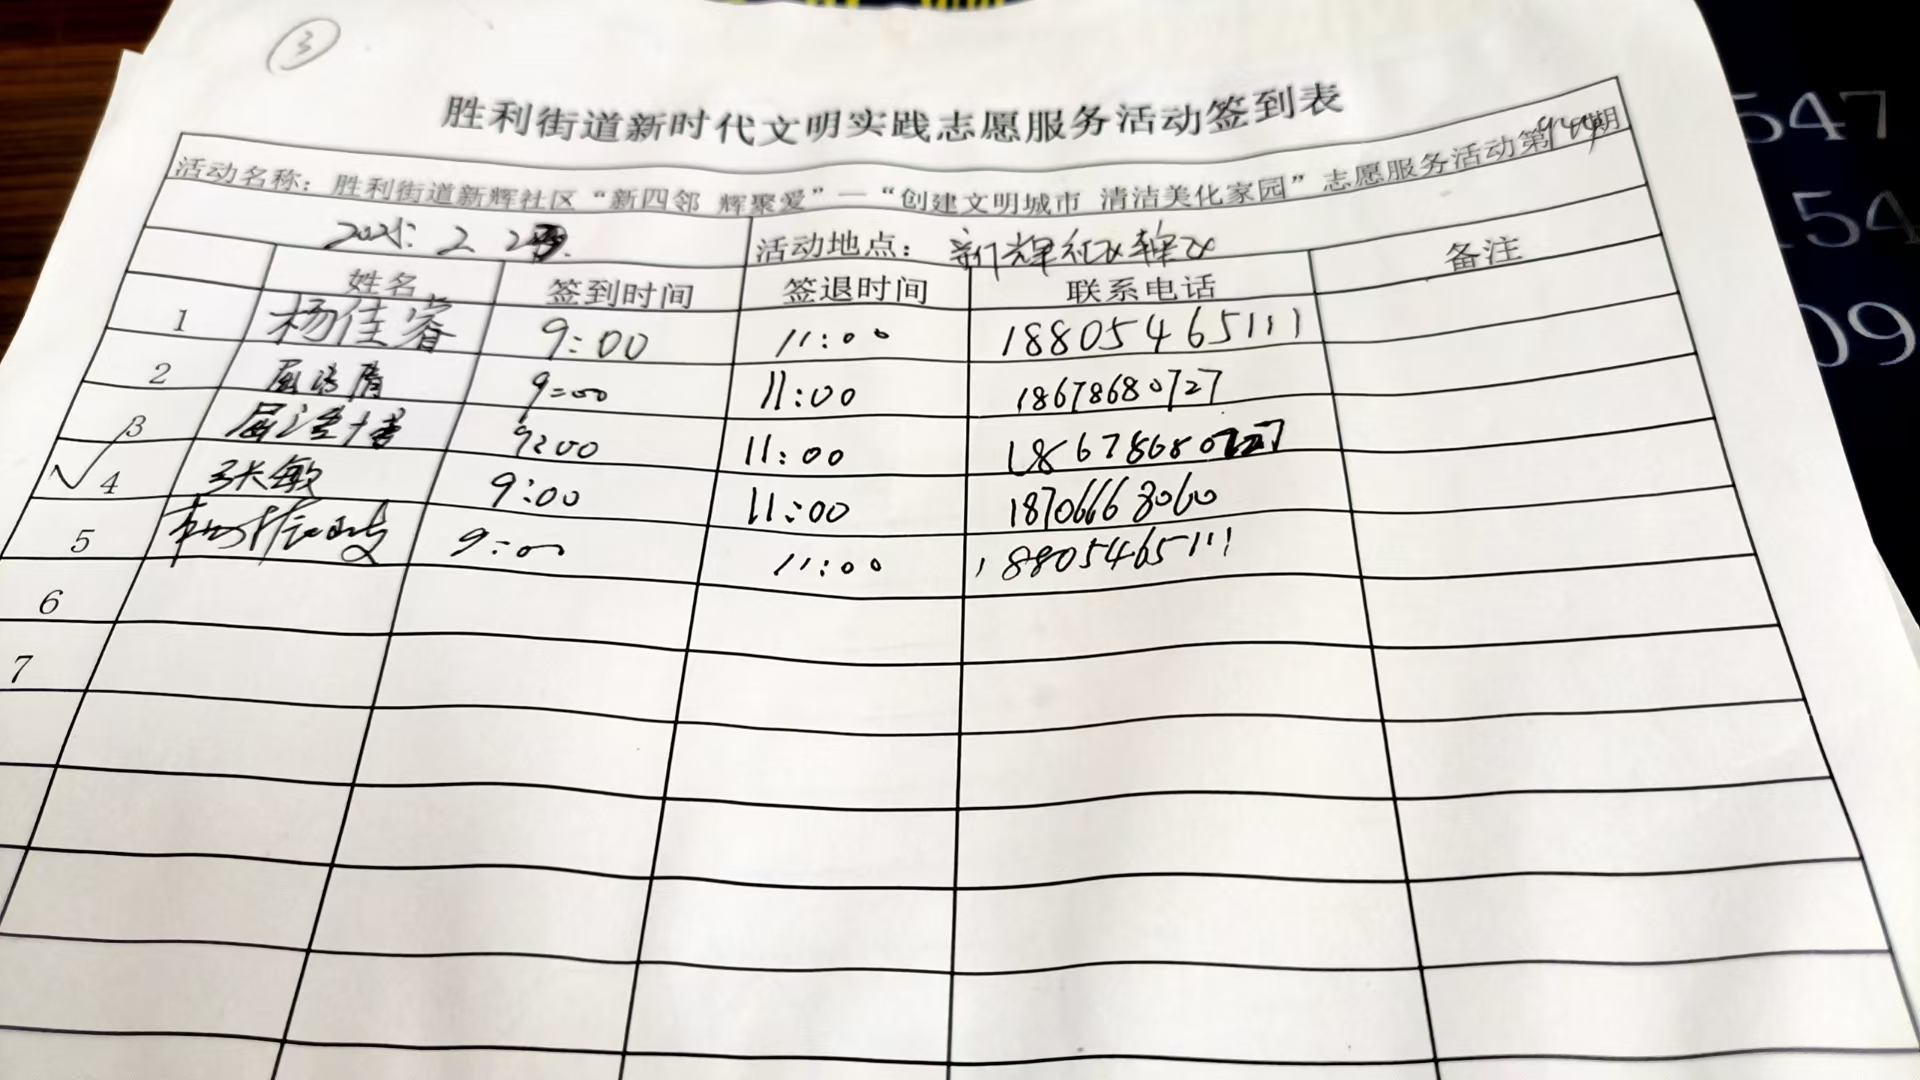 3
胜利街道新时代文明实践志愿服务活动签到表
活动名称：胜利街道新辉社区“新四邻 辉聚爱”—“创建文明城市 清洁美化家园”志愿服务活动第 期
活动地点：新辉社区辖区
姓名 签到时间 签退时间 联系电话 备注
1 杨佳睿 9:00 11:00 18805465111
2 9:00 11:00 18678680727
3 9:00 11:00 18678680727
4 张敏 9:00 11:00 18706668060
5 9:00 11:00 18805465111
6
7
547
154
09